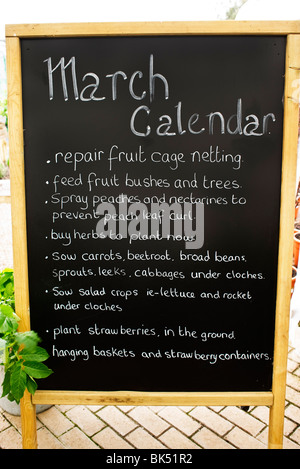 March
Calendar
. repair fruit cage netting.
. feed fruit bushes and trees.
. Spray peaches and nectarines to
prevent peach leaf curl.
. buy herbs to plant now.
. Sow carrots, beetroot, broad beans,
sprouts, leeks, cabbages under cloches.
. Sow salad crops ie-lettuce and rocket
under cloches
. plant strawberries, in the ground,
. hanging baskets and strawberry containers.
alamy
Image ID: BK51R2
www.alamy.com